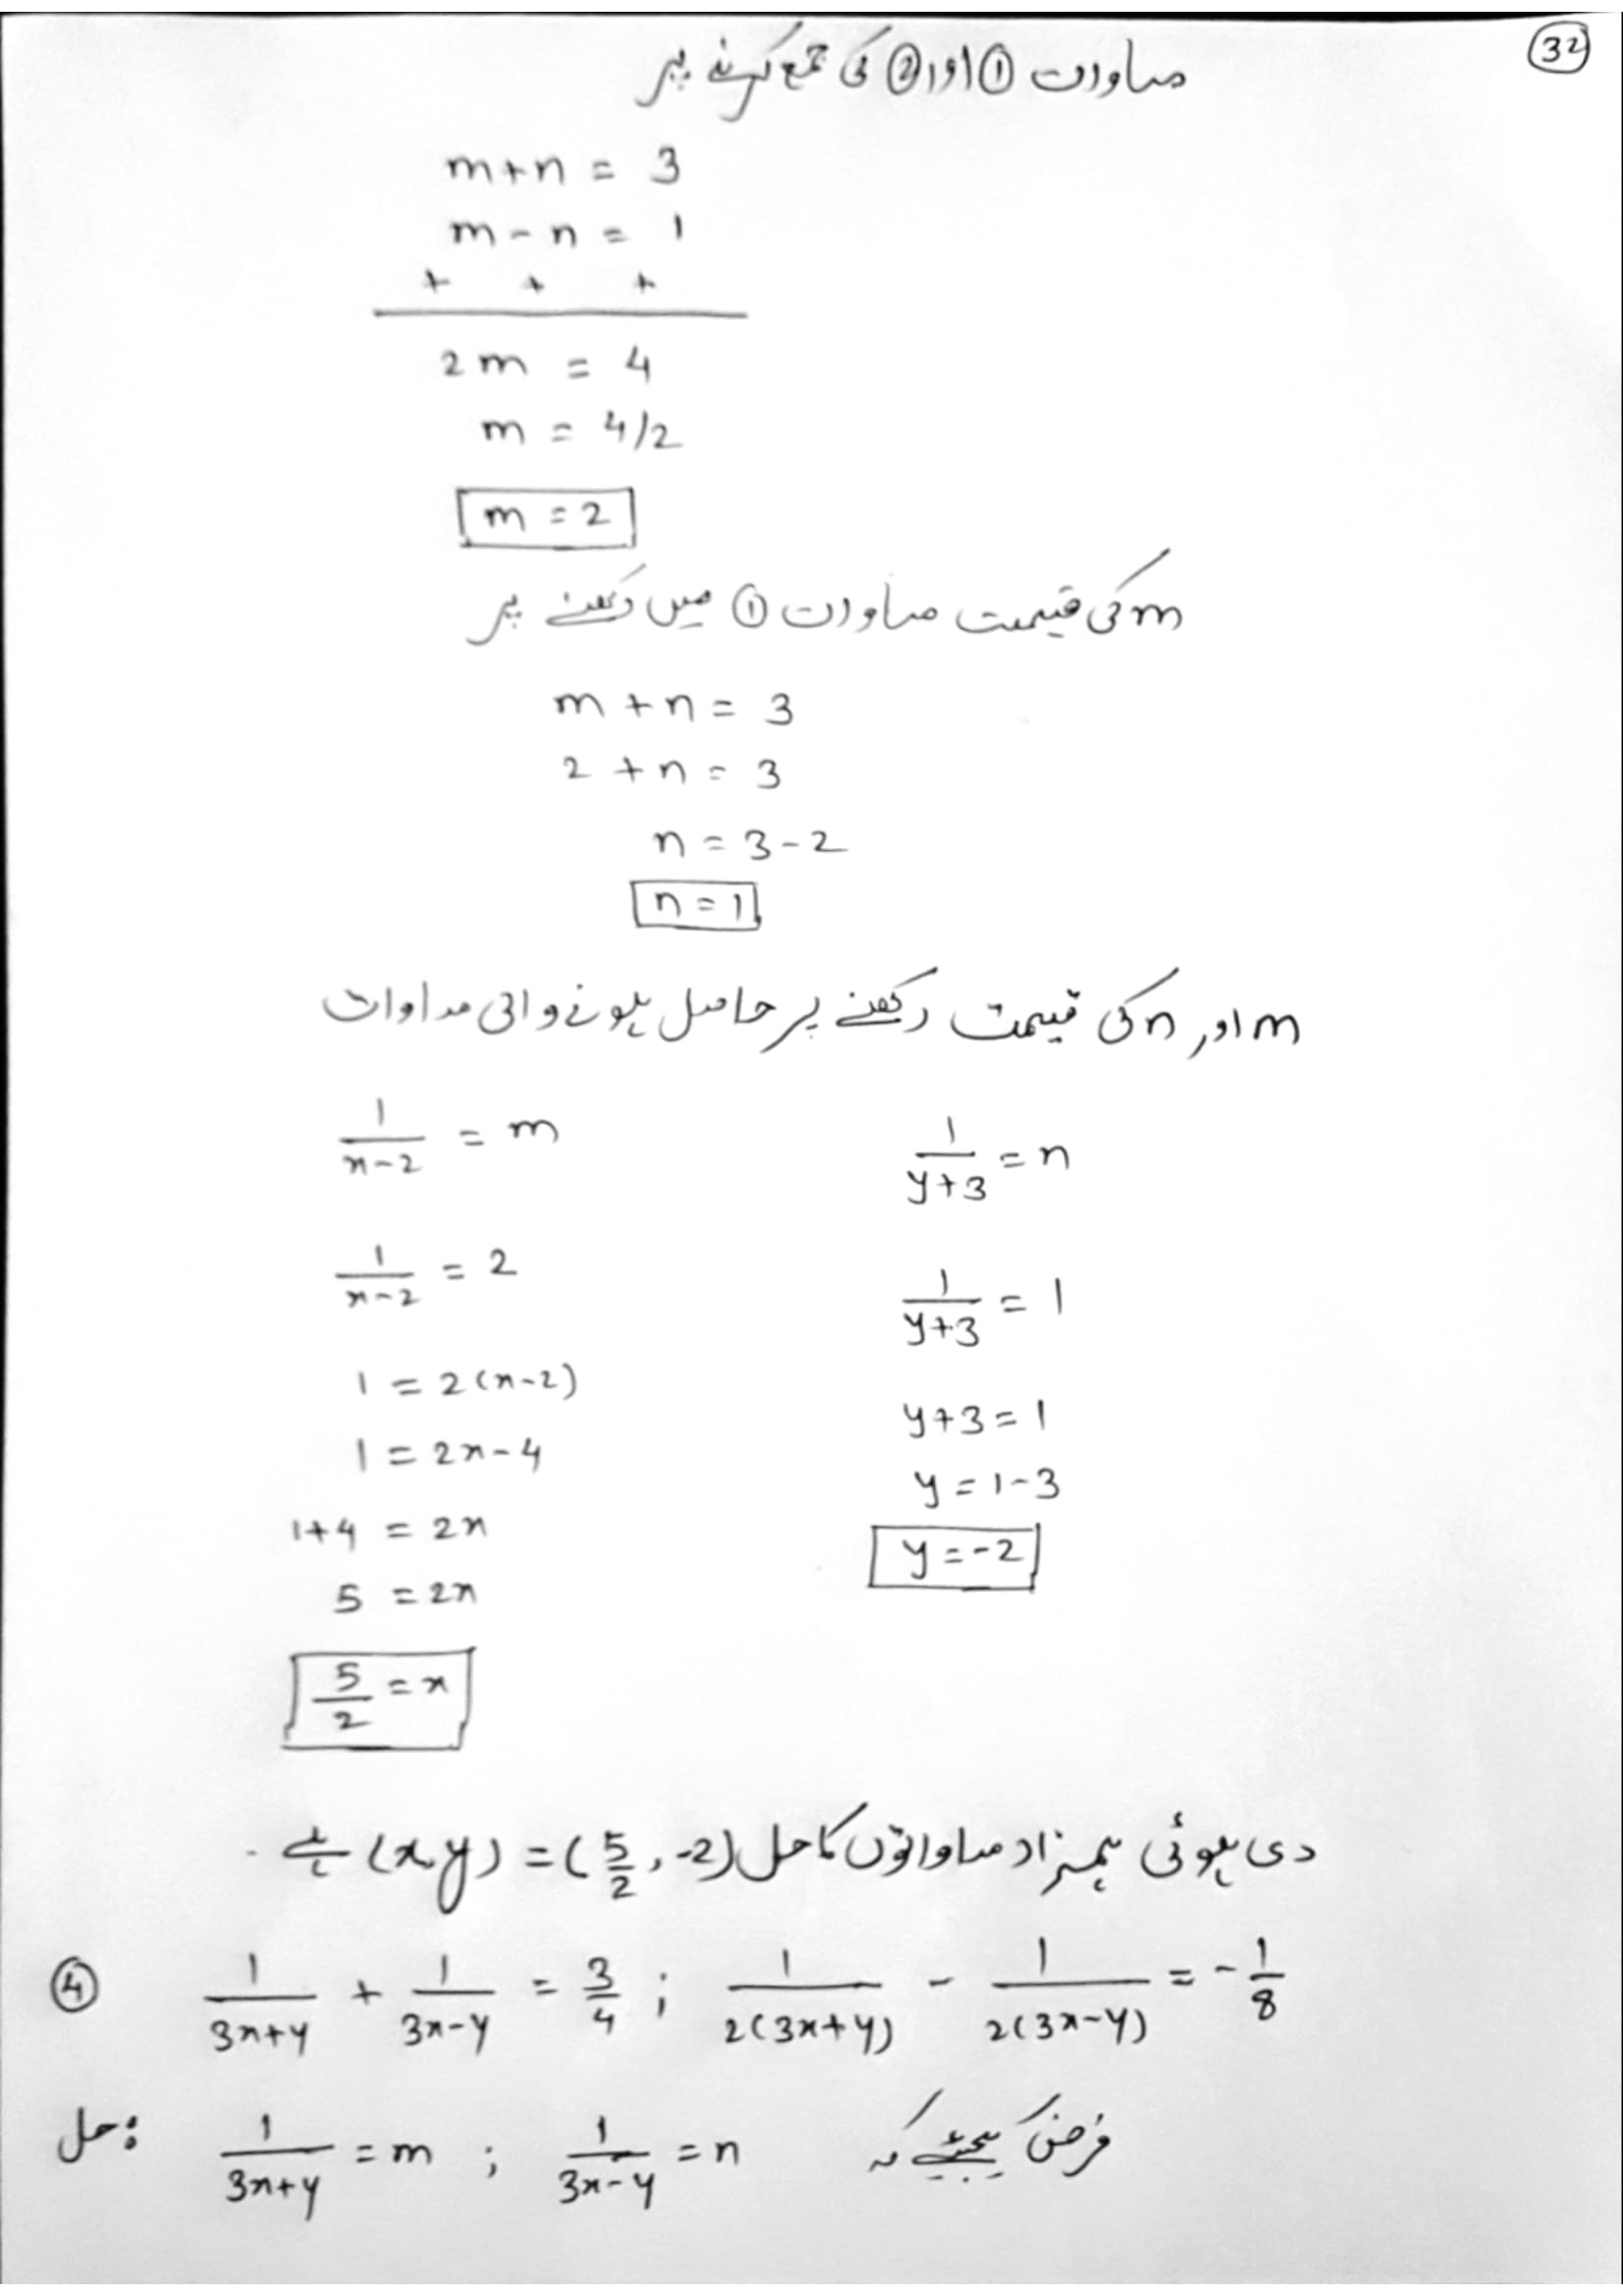 32
مساوات ① اور ② کی جمع کرنے پر
m+n = 3
m-n = 1
+ + +
2m = 4
m = 4/2
m = 2
m کی قیمت مساوات ① میں رکھنے پر
m+n = 3
2+n = 3
n = 3-2
n = 1
m اور n کی قیمت رکھنے پر حاصل ہونے والی مساوات
1/(x-2) = m
1/(x-2) = 2
1 = 2(x-2)
1 = 2x-4
1+4 = 2x
5 = 2x
5/2 = x
1/(y+3) = n
1/(y+3) = 1
y+3 = 1
y = 1-3
y = -2
دی ہوئی ہمزاد مساواتوں کا حل (x,y) = (5/2, -2) ہے۔
④ 1/(3x+y) + 1/(3x-y) = 3/4 ; 1/(2(3x+y)) - 1/(2(3x-y)) = -1/8
حل: 1/(3x+y) = m ; 1/(3x-y) = n فرض کیجئے کہ